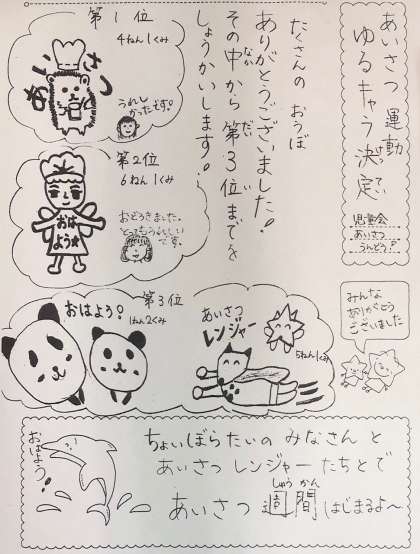 あいさつ 運動
ゆるキャラ 決定
児童会
あいさつ
うんどう!
たくさんの おうぼ
ありがとうございました!
その中から 第3位までを
しょうかいします!
第1位
4ねん1くみ
あいさつ
うれしかったです!
第2位
6ねん1くみ
おはよう☆
おどろきました。
とってもうれしいです。
第3位
おはよう!
1ねん2くみ
あいさつ
レンジャー
5ねん1くみ
みんな
ありがとう
ございました
おはよう!
ちょいぼらたいの みなさんと
あいさつ レンジャーたちとで
あいさつ 週間 はじまるよ〜